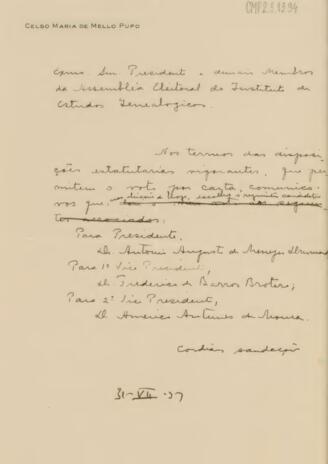 CMP 2.1.13.94
CELSO MARIA DE MELLO PUPO
Exmo. Snr. Presidente e demais Membros
da Assembléa Eleitoral do Instituto de
Estudos Genealogicos.
Nos termos das disposi-
ções estatutarias vigorantes, que per-
mitem o voto por carta, comunico-
vos que, escolhi
Para Presidente,
D. Antonio Augusto de Menezes Drummond
Para 1º Vice Presidente,
D. Frederico de Barros Brotero;
Para 2º Vice Presidente,
D. Americo Antunes de Moura.
Cordiaes saudações
31-VII-37